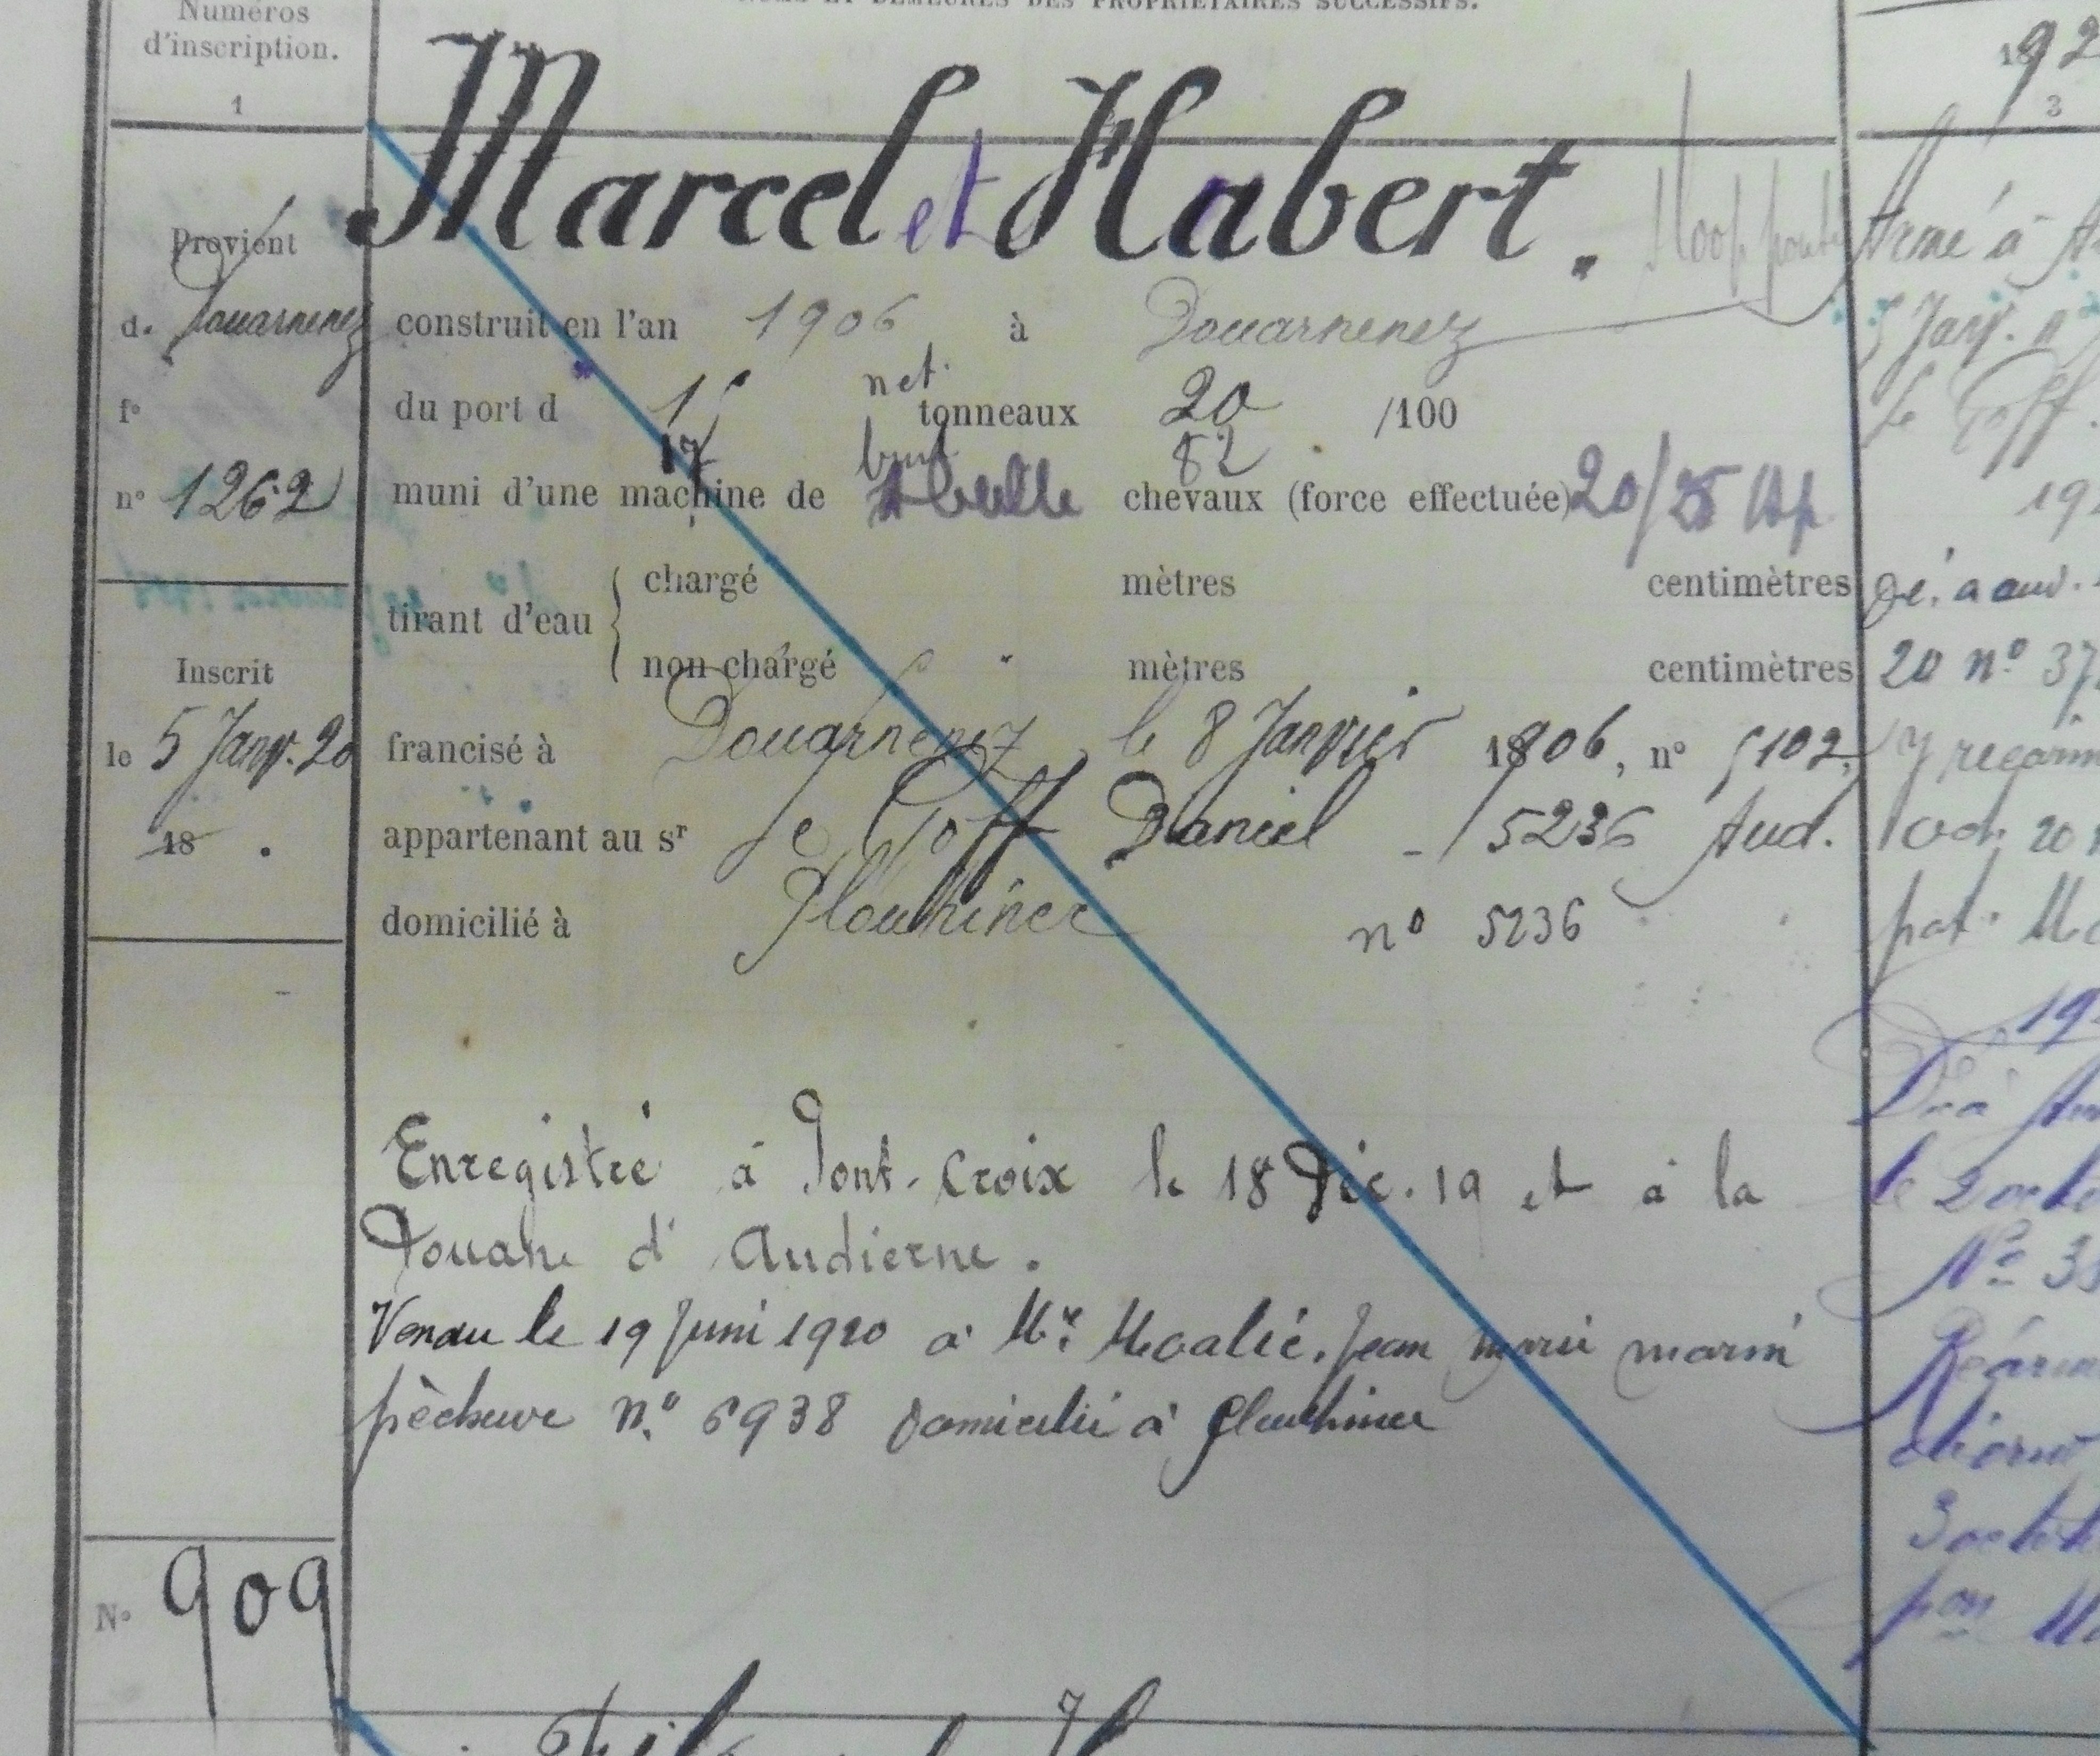 Numéros
d'inscription.
1
NOMS ET DEMEURES DES PROPRIÉTAIRES SUCCESSIFS.
192
3
Marcel et Habert.
Sloop ponté
Provient
de Douarnenez
fo
no 1262
Inscrit
le 5 Janv. 20
18 .
No 909
construit en l'an 1906 à Douarnenez
net.
du port d 15 tonneaux 20 /100
17 brut 82
muni d'une machine de chevaux (force effectuée) 20/25 Hp
tirant d'eau { chargé mètres centimètres
non chargé mètres centimètres
francisé à Douarnenez, le 8 Janvier 1906, no 5102.
appartenant au sr Le Goff Daniel - 5236 Aud.
domicilié à Plouhinec no 5236
Enregistré à Pont-Croix le 18 Déc. 19 et à la
Douane d'Audierne.
Vendu le 19 Juin 1920 à Mr. Moalic. Jean Marie marin
pêcheur n.o 6938 domicilié à Plouhinec
Armé à A
5 Janv. n
le Goff.
192
20 no 37
y réarm
Oct. 20
pat. Mo
19
le 2 octo
No 3
Réarm
3 octob
pon Mo